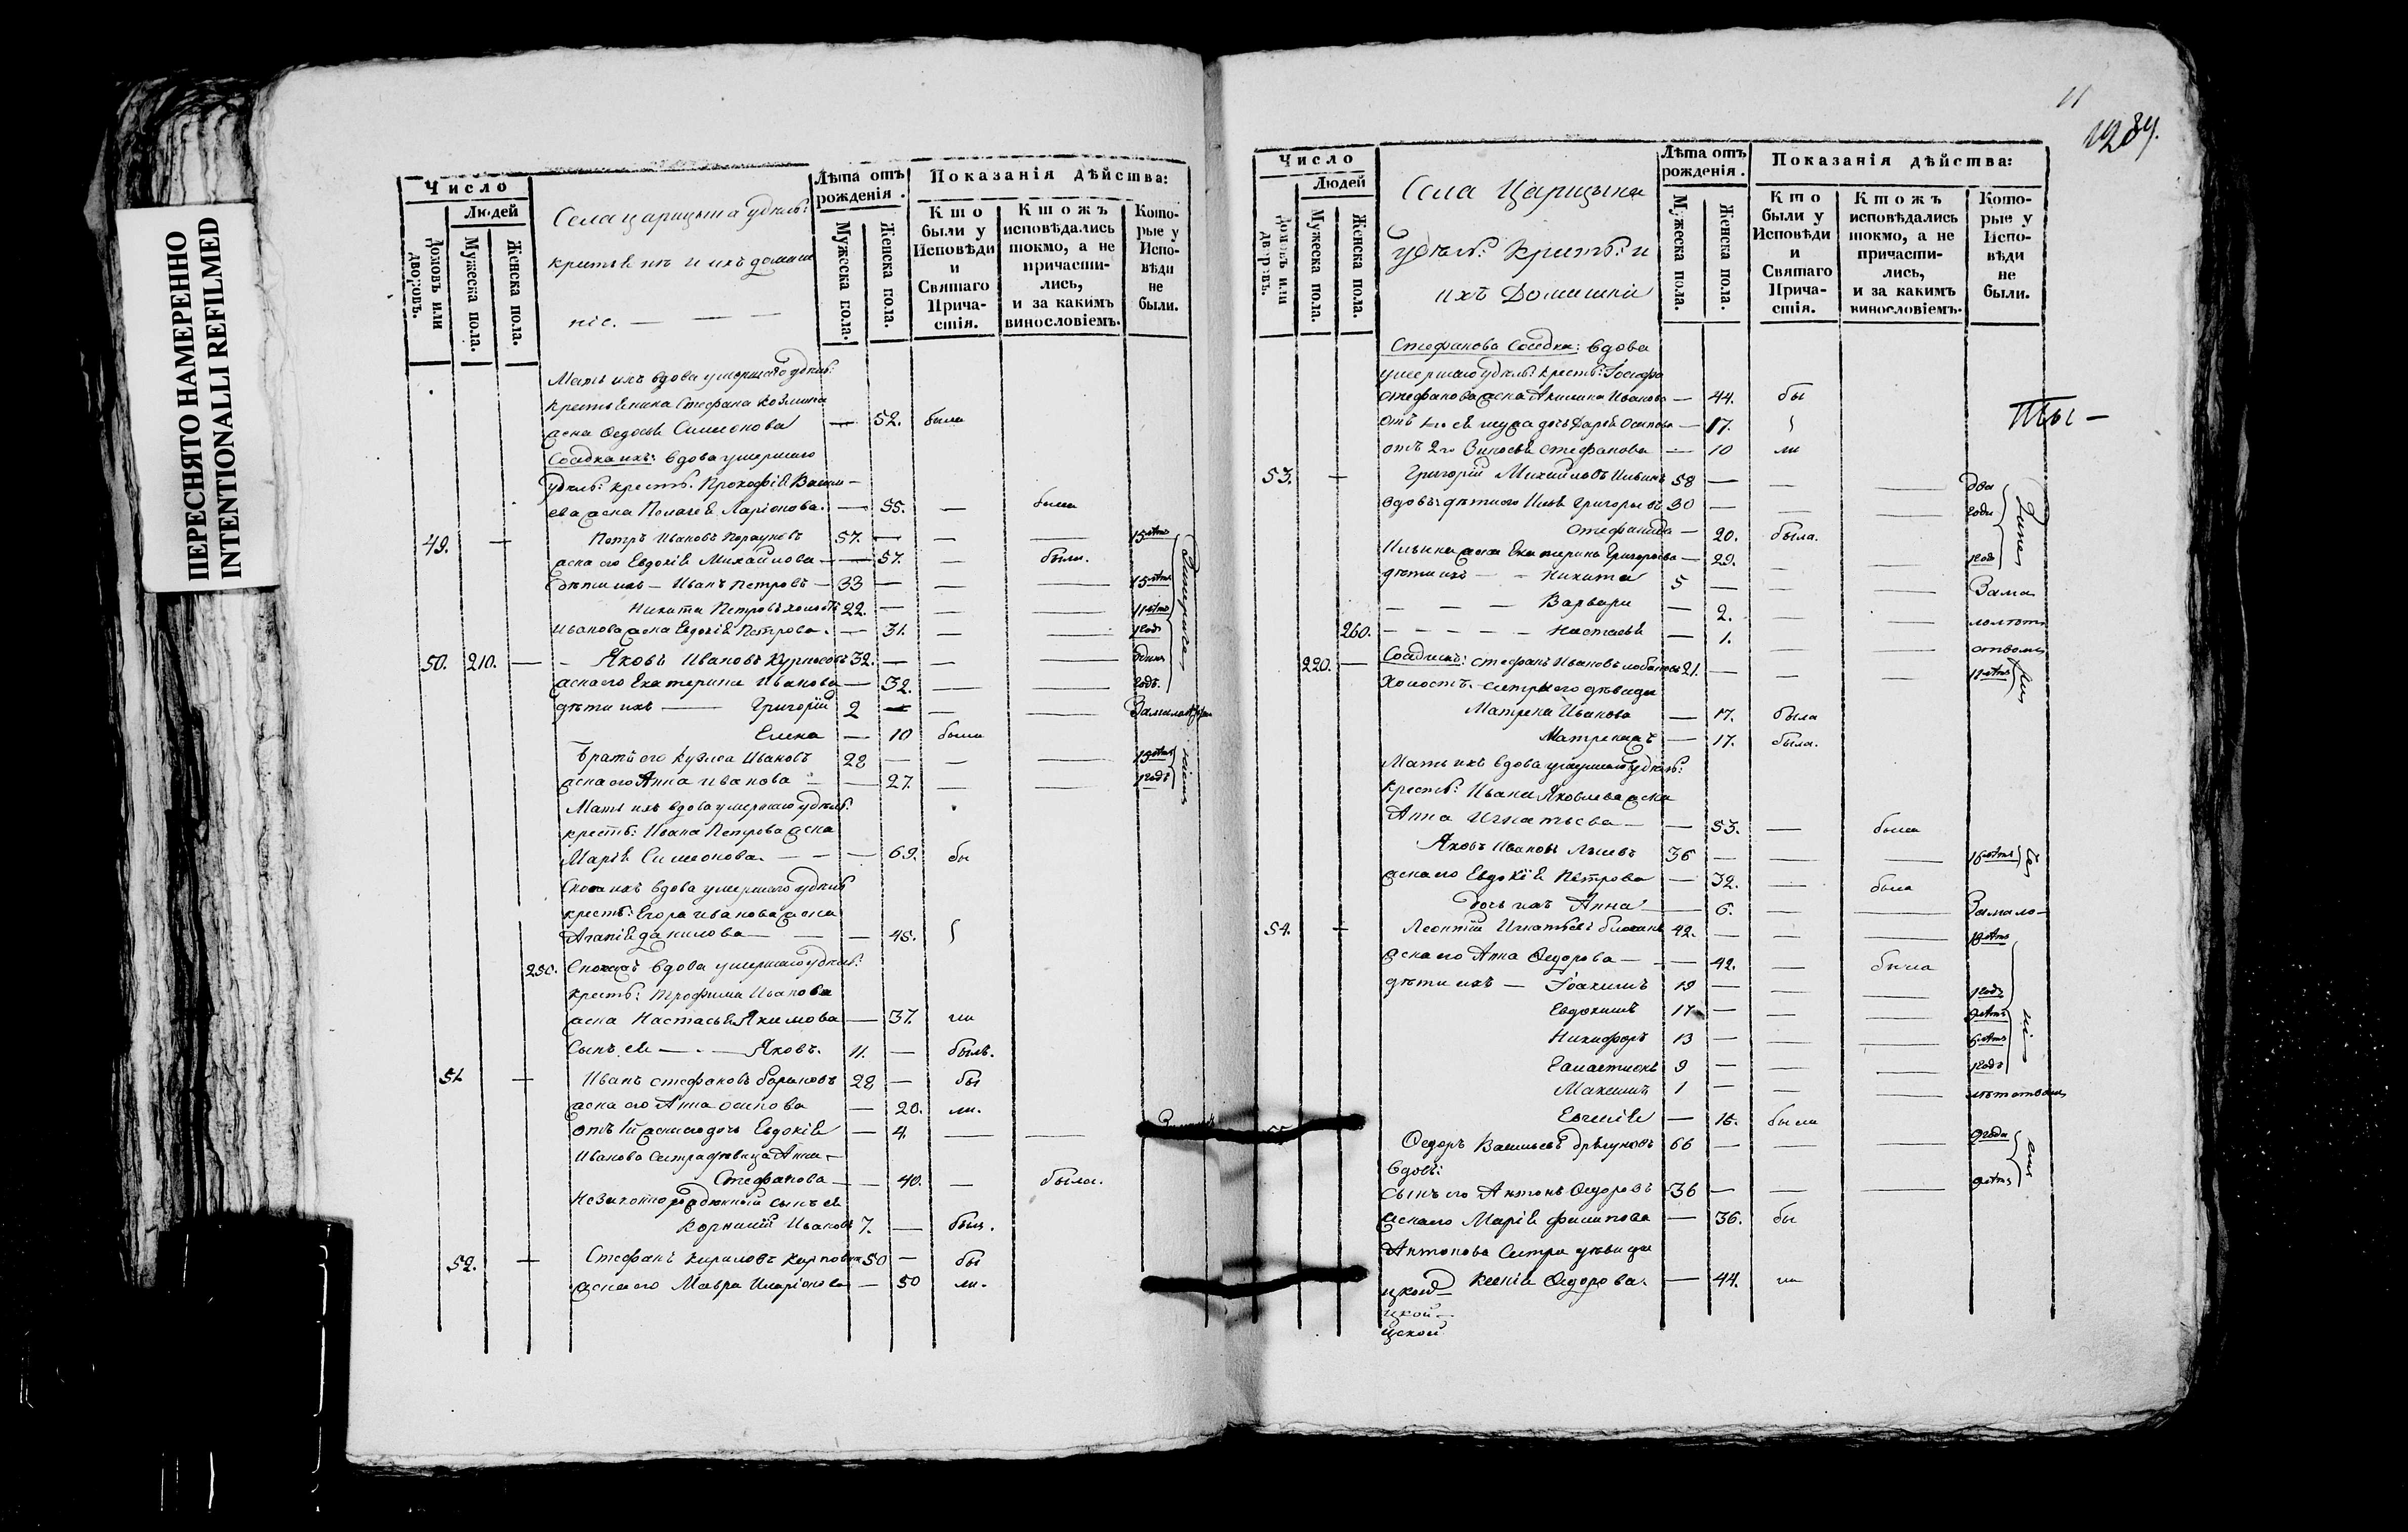 ПЕРЕСНЯТО НАМЕРЕННО
INTENTIONALLI REFILMED
Число
Людей
Домовъ или дворовъ.
Мужеска пола.
Женска пола.
Села царицына удѣль:
крестьянъ и ихъ домаш
ніе. — — —
Лѣта отъ рожденія.
Мужеска пола.
Женска пола.
Показанія дѣйства:
Кто были у Исповѣди и Святаго Причастія.
Кто жъ исповѣдались токмо, а не причастились, и за какимъ винословіемъ.
Которые у Исповѣди не были.
Мать ихъ вдова умершаго удѣль:
крестьянина Стефана Козмина
жена Ѳедосья Симионова — 52. была
Соседка ихъ: вдова умершаго
удѣль: крестъ. Прокофія Васил—
ева жена Пелагея Ларіонова. — 55. — была
49. — Петръ Ивановъ 57. — — — 15 лѣтъ
жена его Евдокія Михайлова — 57. — была.
дѣти ихъ — Иванъ Петровъ — 33 — — — 15 лѣтъ
Никита Петровъ холостъ 22. — — — 11 лѣтъ
Иванова жена Евдокія Петрова. — 31. — — 1 годъ
50. 210. — Яковъ Ивановъ Курносовъ 32. — — — одинъ
жена его Екатерина Иванова — 32. — — годъ.
дѣти ихъ — Григорій 2 — — —
Елена — 10 была
Братъ его Кузма Ивановъ 28 — — — 13 лѣтъ
жена его Анна Иванова — 27. — — 1 годъ
Мать ихъ вдова умершаго удѣль:
крестъ: Ивана Петрова жена
Марія Симионова. — — 69. бы
Сноха ихъ вдова умершаго удѣль
крестъ: Егора Иванова жена
Агапія Данилова — — 45.
230. Сноха ихъ вдова умершаго удѣль:
крестъ: Трофима Иванова
жена Настасья Якимова — 37. ли
Сынъ ея — — Яковъ. 11. — былъ.
51. — Иванъ Стефановъ 28 — бы
жена его Анна Осипова — 20. ли.
отъ 1й жены его дочь Евдокія — 4. — —
Иванова сестра дѣвица Анна —
Стефанова — 40. — была.
Незаконнорожденный сынъ ея
Корнилій Ивановъ 7. — былъ.
52. — Стефанъ Кириловъ 50 — бы
жена его Мавра Иларіонова — 50 ли.
11
1284.
Число
Людей
Домовъ или дворовъ.
Мужеска пола.
Женска пола.
Села Царицына
удѣль: крестъ: и
ихъ Домашніи
Лѣта отъ рожденія.
Мужеска пола.
Женска пола.
Показанія дѣйства:
Кто были у Исповѣди и Святаго Причастія.
Кто жъ исповѣдались токмо, а не причастились, и за какимъ винословіемъ.
Которые у Исповѣди не были.
Стефанова Соседка: вдова
умершаго удѣль: крестъ: Іосифа
Стефанова жена Акилина Иванова — 44. бы
отъ 1го ея мужа дочь Дарья Осипова — 17.
отъ 2го Зиновья Стефанова — 10 ли
53. — Григорій Михайловъ Ильинъ 58 — — — два
вдовъ: дѣти его Илья Григорьевъ 30 — — — года
Стефанида — 20. была.
Ильина жена Екатерина Григорьева — 29. — — 1 годъ
дѣти ихъ — Никита 5 — — — За ма
— — — Варвара — 2. — — лолѣт
260. — — — Настасья — 1. — — ствомъ
220. — Соседъ ихъ: Стефанъ Ивановъ 21. — — — 11 лѣтъ
Холостъ. сестры его дѣвицы
Матрена Иванова — 17. была
Матрена — 17. была.
Мать ихъ вдова умершаго удѣль:
крестъ: Ивана Яковлева жена
Анна Игнатьева — — 53. — была
Яковъ Ивановъ 36 — — — 16 лѣтъ
жена его Евдокія Петрова — 32. — была
дочь ихъ Анна — 6. — — За мало—
54. — Леонтій Игнатьевъ 42. — — — 18 лѣтъ
жена его Анна Ѳедорова — — 42. — была
дѣти ихъ — Іоакимъ 19 — — — 1 годъ
Евдокимъ 17 — — — 9 лѣтъ
Никифоръ 13 — — — 6 лѣтъ
9 — — — 1 годъ
Максимъ 1 — — — лѣтствомъ
Евгенія — 15. была
Ѳедоръ Васильевъ 66 — — — 2 года
вдовъ:
сынъ его Антонъ Ѳедоровъ 36 — — — 9 лѣтъ
жена его Марія Филипова — 36. бы
Антонова Сестра дѣвица
Ксенія Ѳедорова. — 44. ли
цкой
цкой —
цской